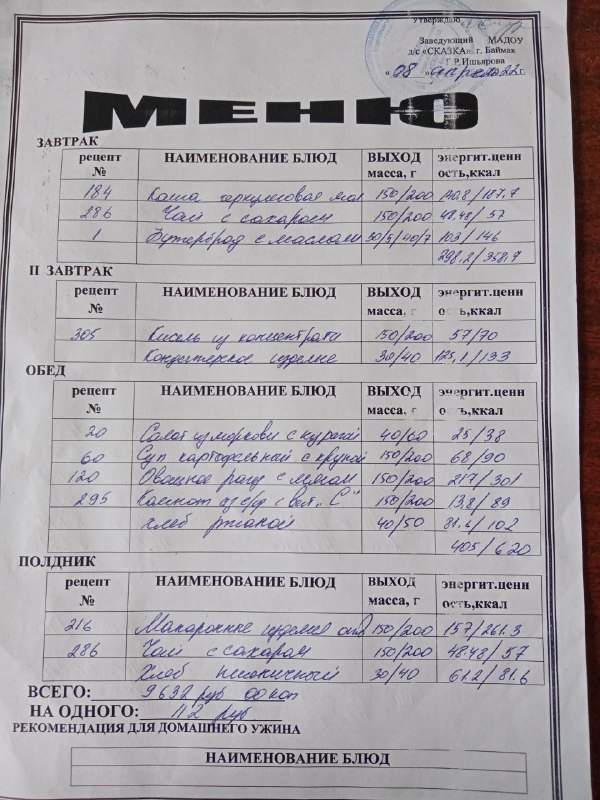 Утверждаю
Заведующий МАДОУ
д/с «СКАЗКА» г. Баймак
Г.Р.Ишьярова
«08» апреля 22г.
МЕНЮ
ЗАВТРАК
рецепт № НАИМЕНОВАНИЕ БЛЮД ВЫХОД масса, г энергит.ценн ость,ккал
184 Каша геркулесовая мол 150/200 140.8/187.7
286 Чай с сахаром 150/200 48.48/57
1 Бутерброд с маслом 30/5/40/7 103/146
298,2/358,7
II ЗАВТРАК
рецепт № НАИМЕНОВАНИЕ БЛЮД ВЫХОД масса, г энергит.ценн ость,ккал
305 Кисель из концентрата 150/200 57/70
Кондитерское изделие 30/40 125,1/133
ОБЕД
рецепт № НАИМЕНОВАНИЕ БЛЮД ВЫХОД масса, г энергит.ценн ость,ккал
20 Салат из моркови с курагой 40/60 25/38
60 Суп картофельный с крупой 150/200 68/90
120 Овощное рагу с мясом 150/200 217/301
295 Компот из с/ф с вит. "С" 150/200 13,8/89
хлеб ржаной 40/50 81.6/102
405/620
ПОЛДНИК
рецепт № НАИМЕНОВАНИЕ БЛЮД ВЫХОД масса, г энергит.ценн ость,ккал
216 Макаронные изделия 150/200 157/261.3
286 Чай с сахаром 150/200 48.48/57
Хлеб пшеничный 30/40 61.2/81.6
ВСЕГО: 9632 руб 00 коп
НА ОДНОГО: 112 руб
РЕКОМЕНДАЦИЯ ДЛЯ ДОМАШНЕГО УЖИНА
НАИМЕНОВАНИЕ БЛЮД